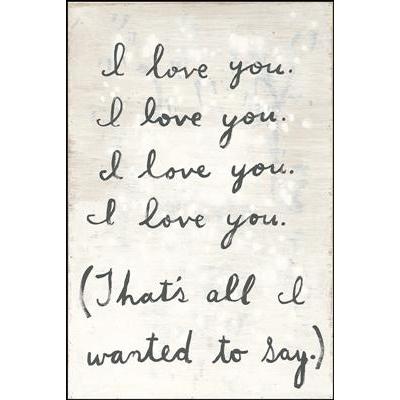 I love you.
I love you.
I love you.
I love you.
(That's all I
wanted to say.)